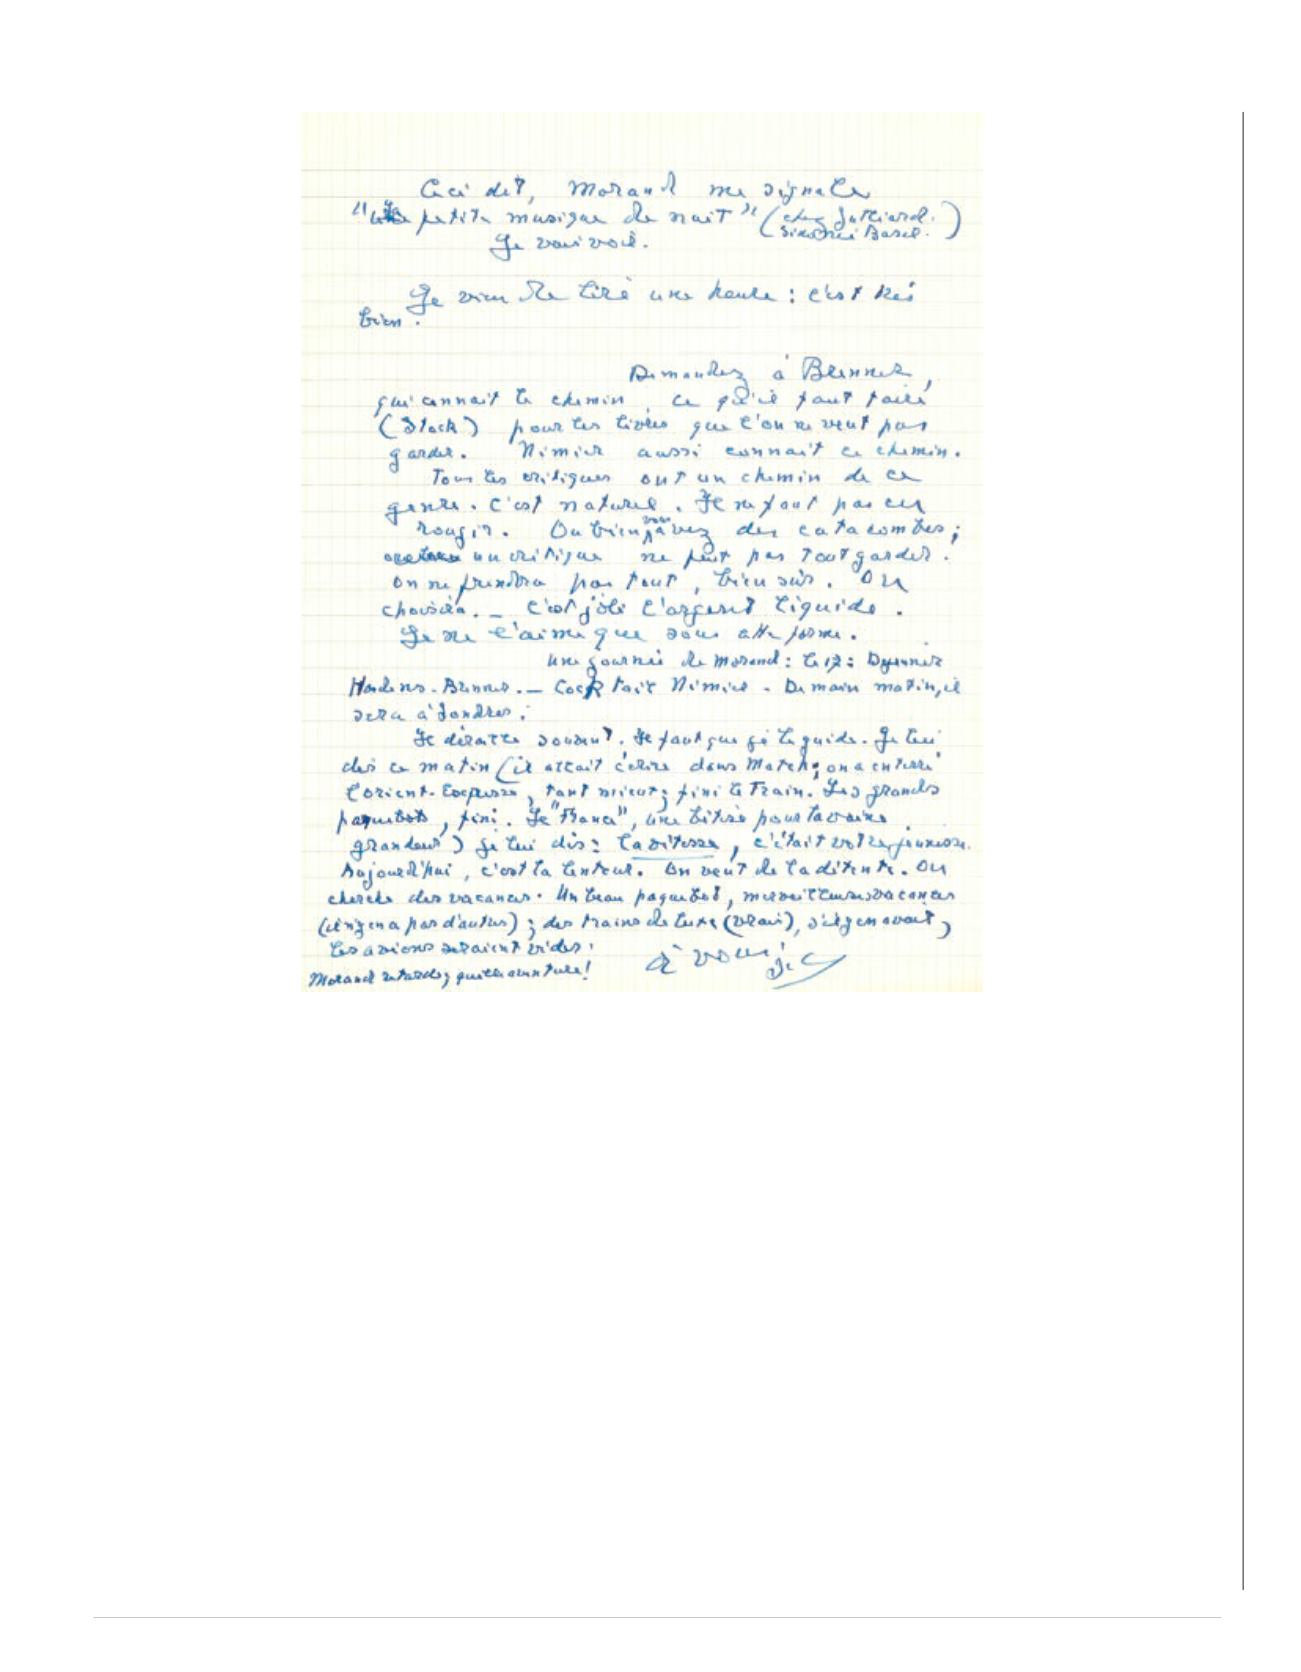 Ceci dit, Morand me signale
"une petite musique de nuit" (chez Julliard.
Basil.)
Je vais voir.
Je viens de lire une heure : c'est très
bien.
Demandez à Brenner,
qui connait le chemin, ce qu'il faut faire
(Stock) pour les livres que l'on ne veut pas
garder. Nimier aussi connait ce chemin.
Tous les critiques ont un chemin de ce
genre. C'est naturel. Il ne faut pas en
rougir. Ou bien, vous avez des catacombes ;
un critique ne peut pas tout garder.
On ne prendra pas tout, bien sûr. On
choisira. — C'est joli l'argent liquide.
Je ne l'aime que sous cette forme.
Une journée de Morand : le 17 :
Brenner. — Cocktail Nimier. Demain matin, il
sera à Londres.
Il déraille souvent. Il faut que je le guide. Je lui
dis ce matin (il allait écrire dans Match : on a enterré
l'Orient-Express, tant mieux ; fini le train. Les grands
paquebots, fini. Le "France", une bêtise pour la vaine
grandeur) je lui dis : la vitesse, c'était votre jeunesse.
Aujourd'hui, c'est la lenteur. On veut de la détente. On
cherche des vacances. Un beau paquebot, merveilleuses vacances
(il n'y en a pas d'autres) ; des trains de luxe (vrais), s'il y en avait,
les avions seraient vides.
Morand retarde, quelle aventure !
à vous
J. C